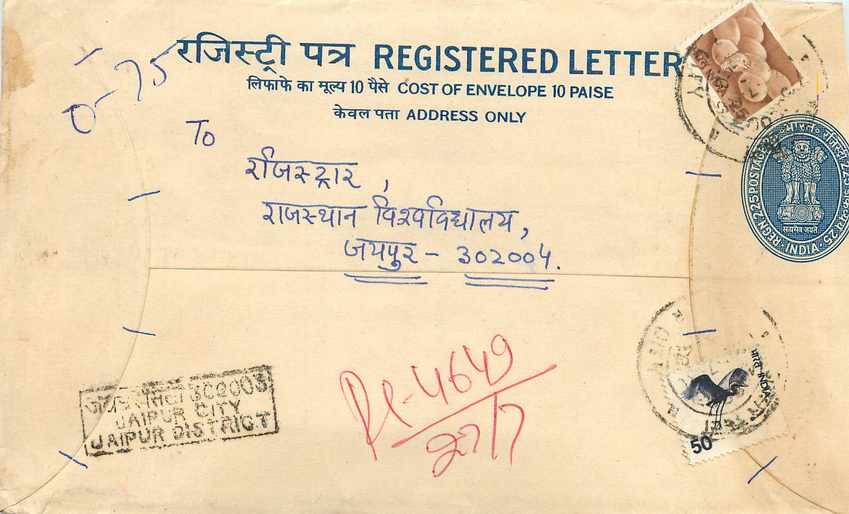 रजिस्ट्री पत्र REGISTERED LETTER
लिफाफे का मूल्य 10 पैसे COST OF ENVELOPE 10 PAISE
केवल पता ADDRESS ONLY
0-75
To
रजिस्ट्रार,
राजस्थान विश्वविद्यालय,
जयपुर - 302004.
REGN. 225 POSTAGE
भारत
सत्यमेव जयते
INDIA
JAIPUR CITY
JAIPUR DISTRICT
4649
27/7
भारत INDIA
50